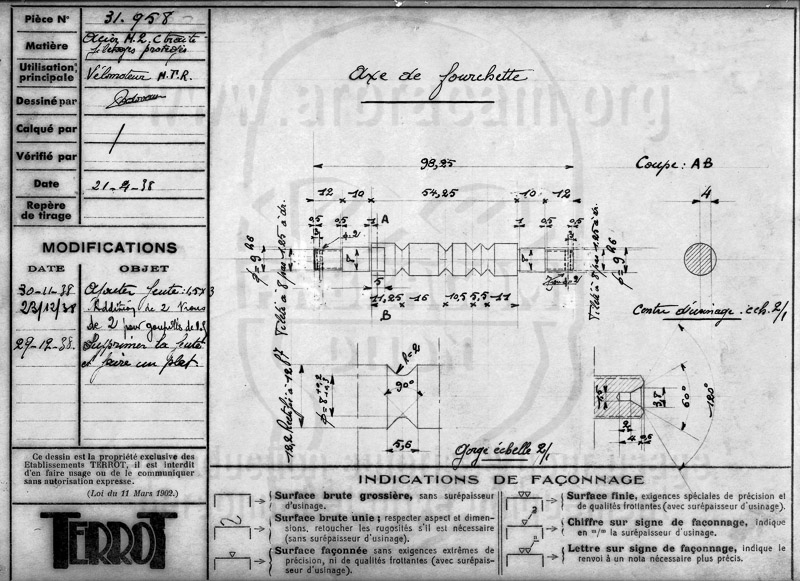 Pièce N° 31.958
Matière Acier M.R. C traité
filetages protégés
Utilisation principale Vélomoteur M.T.R.
Dessiné par
Calqué par
Vérifié par
Date 21-9-38
Repère de tirage
MODIFICATIONS
DATE OBJET
30-11-38 Ajouter fente: 1,5 x 3
23/12/38 Addition de 2 trous
de 2 pour goupilles de 1,5
29-12-38. Supprimer la fente
et faire un plat.
Ce dessin est la propriété exclusive des
Etablissements TERROT, il est interdit
d'en faire usage ou de le communiquer
sans autorisation expresse.
(Loi du 11 Mars 1902.)
TERROT
Axe de fourchette
98,25
12 10 54,25 10 12
0,5 0,5 1 A 1 0,5 0,5
φ=2
φ=9 h6
8
8
φ=9 h6
Fileté à 8 pas 1,25 à dr.
Fileté à 8 pas 1,25 à dr.
5
11,25 16 10,5 5,5 11
B
Coupe: AB
4
Centre d'usinage. ech. 2/1
1,5
3,8
60°
120°
2
4 0,5
R=2
90°
φ=8 +0,2 +0,3
12,2 Rectifié à 12 f7
5,6
Gorge échelle 2/1
www.araracaim.org
INDICATIONS DE FAÇONNAGE
Surface brute grossière, sans surépaisseur
d'usinage.
Surface brute unie; respecter aspect et dimen-
sions, retoucher les rugosités s'il est nécessaire
(sans surépaisseur d'usinage).
Surface façonnée sans exigences extrêmes de
précision, ni de qualités frottantes (avec surépais-
seur d'usinage).
Surface finie, exigences spéciales de précision et
de qualités frottantes (avec surépaisseur d'usinage).
Chiffre sur signe de façonnage, indique
en m/m la surépaisseur d'usinage.
Lettre sur signe de façonnage, indique le
renvoi à un nota nécessaire plus précis.